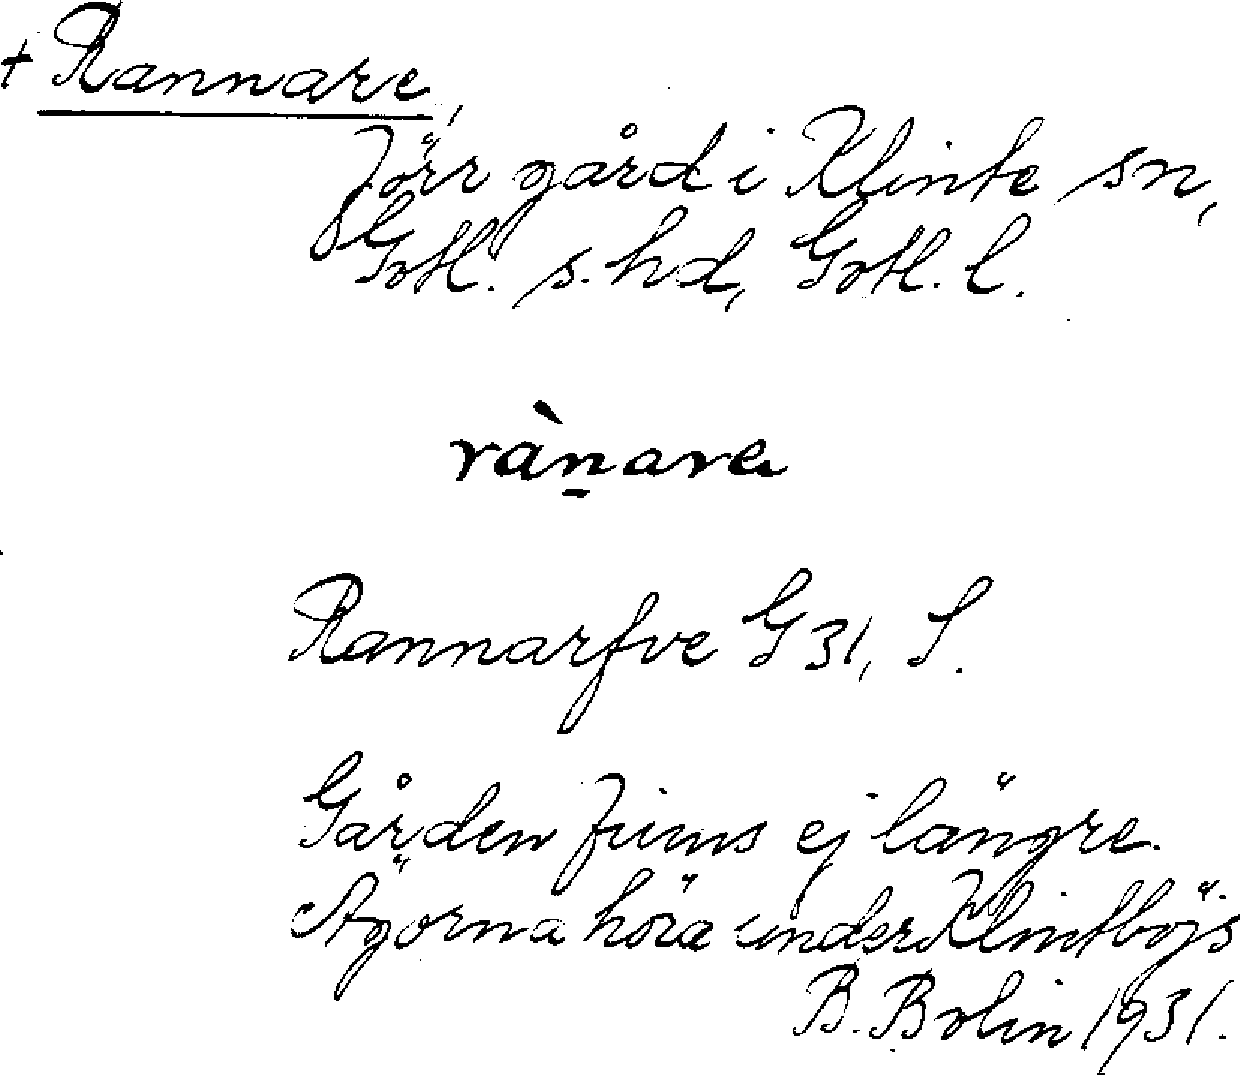 + Rannare,
förr gård i Klinte sn,
Gotl. s. hd, Gotl. l.
rànare
Rannarfve G 31, S.
Gården finns ej längre.
Ägorna höra under Klintböjs
B. Bolin 1931.